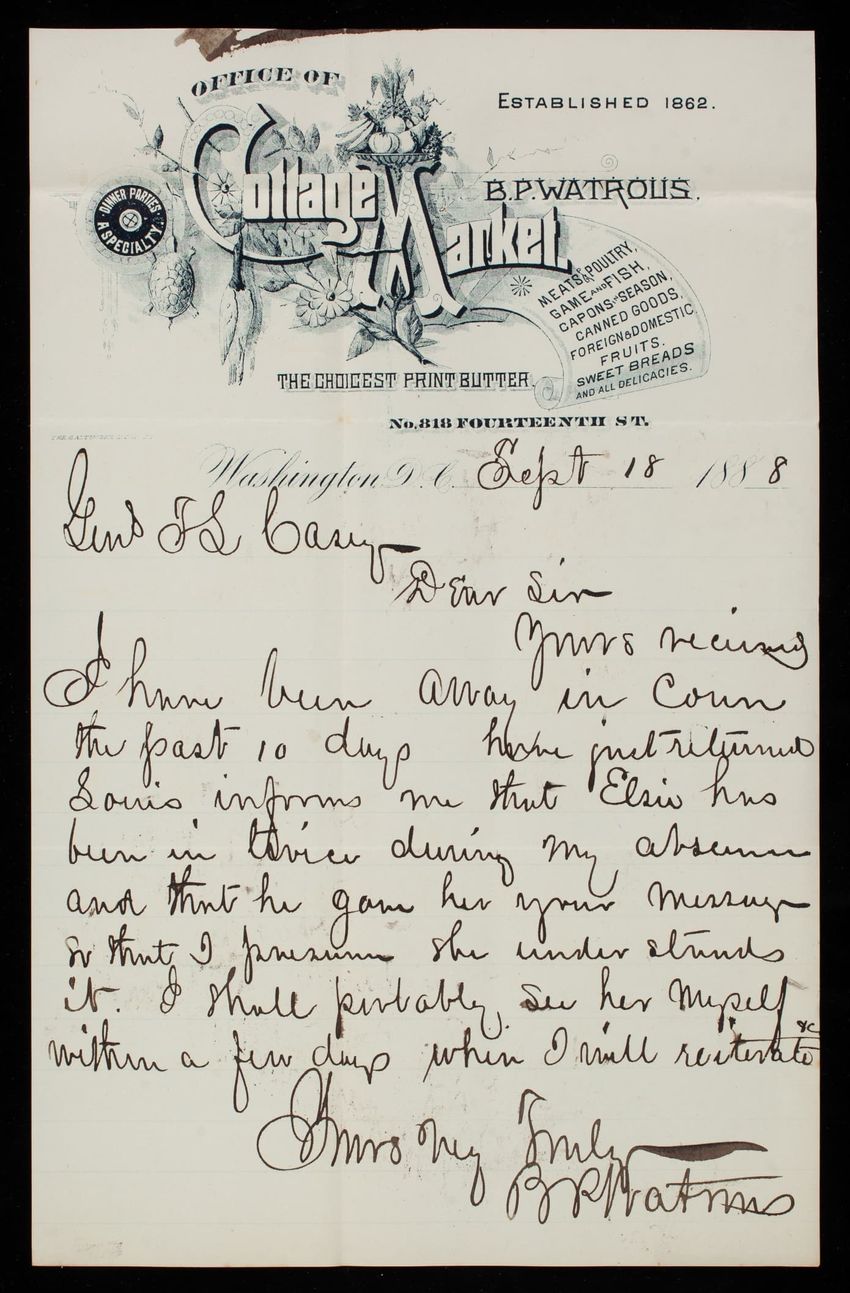 OFFICE OF
ESTABLISHED 1862.
Cottage Market.
B.P. WATROUS.
DINNER PARTIES A SPECIALTY.
MEATS & POULTRY,
GAME AND FISH,
CAPONS IN SEASON,
CANNED GOODS,
FOREIGN & DOMESTIC
FRUITS.
SWEET BREADS
AND ALL DELICACIES.
THE CHOICEST PRINT BUTTER.
No. 818 FOURTEENTH ST.
Washington, D.C. Sept 18 1888
Genl T L Casey
Dear Sir
Yours recieved
I have been away in Conn
the past 10 days have just returned
Louis informs me that Elsie has
been in twice during my absence
and that he gave her your message
so that I presume she under stands
it. I shall probably see her myself
within a few days when I will reiterate it &c
Yours Very Truly
B P Watrous